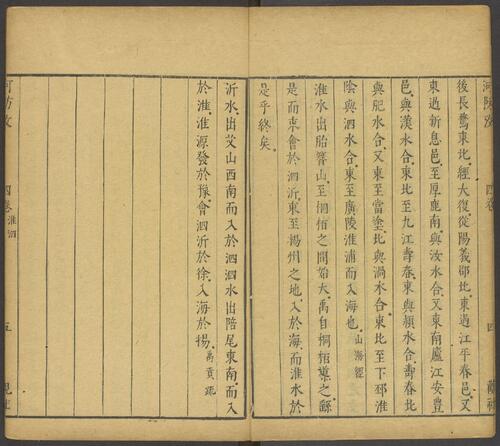 後長鶩東北經大復從陽義鄉北東過江乎春邑又
東過新息邑至厚鹿南與汝水合又東南廬江安豐
邑與漢水合東北至九江壽春東與潁水合壽春北
與肥水合又東至當塗北與渦水合東北至下邳淮
陰與泗水合東至廣陵淮浦而入海也 山海經
淮水出胎簪山至桐栢之間始大禹自桐栢導之繇
是而東會於泗沂東至揚州之地入於海而淮水於
是乎終矣
沂水出艾山西南而入於泗泗水出陪尾東南而入
於淮淮源發於豫會泗沂於徐入海於揚 禹貢疏
四卷 淮泗
五